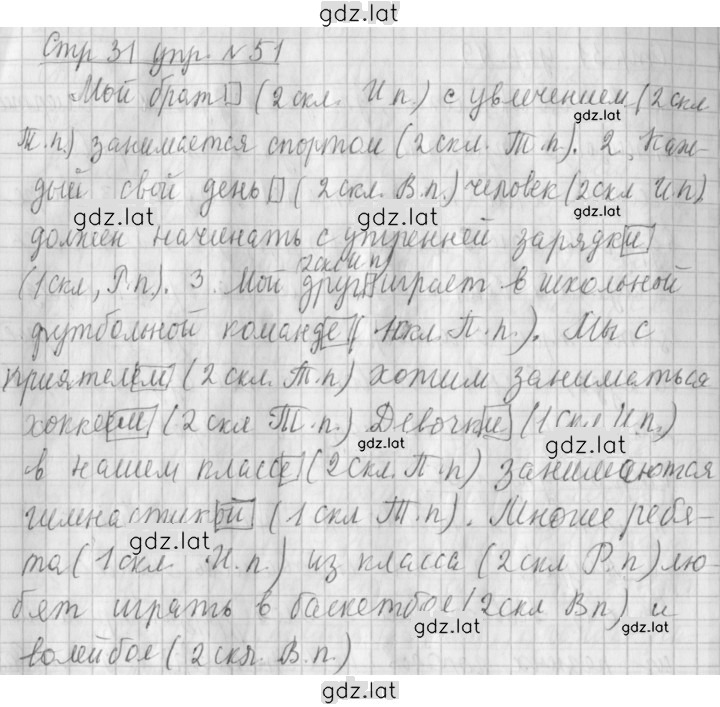 gdz.lat
Стр 31 упр. №51
Мой брат (2 скл. И.п.) с увлечением (2 скл
gdz.lat
Т.п.) занимается спортом (2 скл. Т.п). 2. Каж-
дый свой день (2 скл. В.п.) человек (2 скл И.п)
gdz.lat gdz.lat gdz.lat
должен начинать с утренней зарядки
(2 скл И п)
(1 скл, Р.п). 3. Мой друг играет в школьной
футбольной команде (1 скл. П.п.). Мы с
приятелем (2 скл. Т.п) хотим заниматься
хоккеем (2 скл Т.п) Девочки (1 скл И.п.)
gdz.lat gdz.lat
в нашем классе (2 скл. П.п) занимаются
гимнастикой (1 скл Т.п). Многие ребя-
gdz.lat
та (1 скл. И.п.) из класса (2 скл Р.п) лю-
бят играть в баскетбое (2 скл В п) и
gdz.lat gdz.lat
волейбое (2 скл. В.п.)
gdz.lat